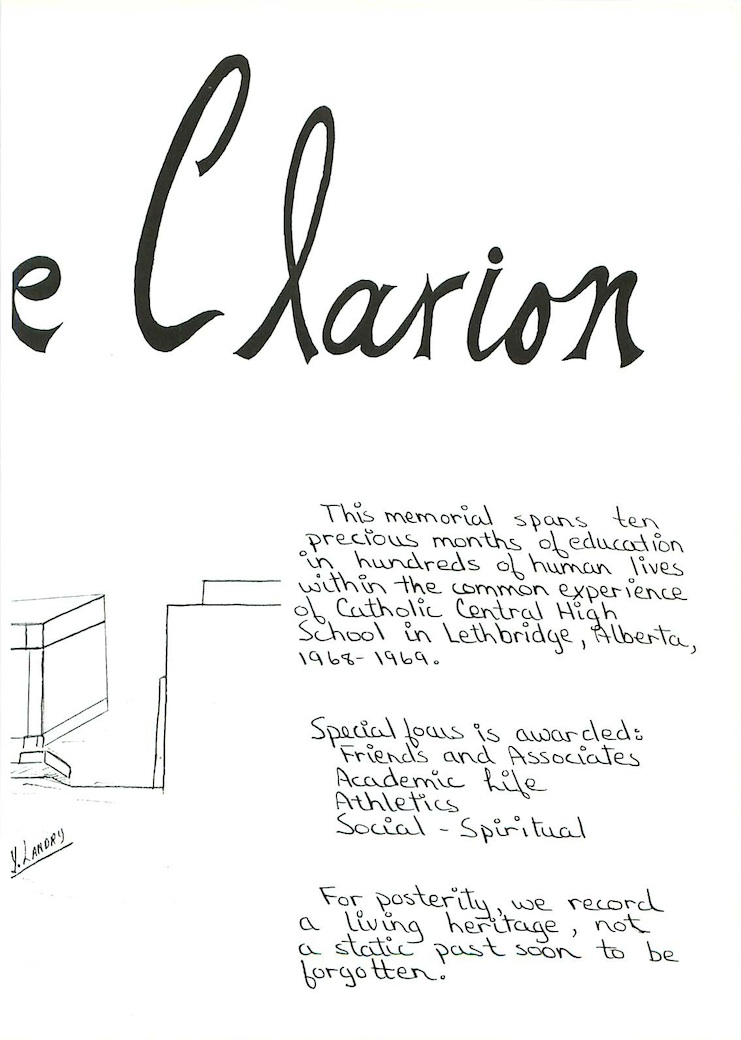 e Clarion
This memorial spans ten
precious months of education
in hundreds of human lives
within the common experience
of Catholic Central High
School in Lethbridge, Alberta,
1968-1969.
Special focus is awarded:
Friends and Associates
Academic Life
Athletics
Social - Spiritual
Y. LANDRY
For posterity, we record
a living heritage, not
a static past soon to be
forgotten.